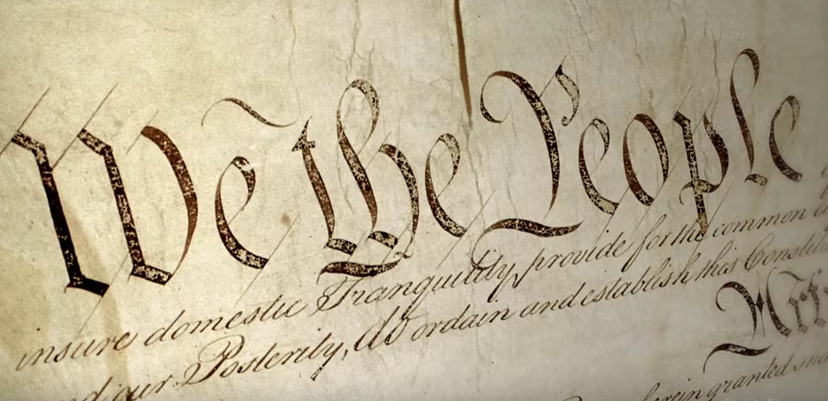 We the People
insure domestic Tranquility, provide for the common
our Posterity, do ordain and establish this
granted